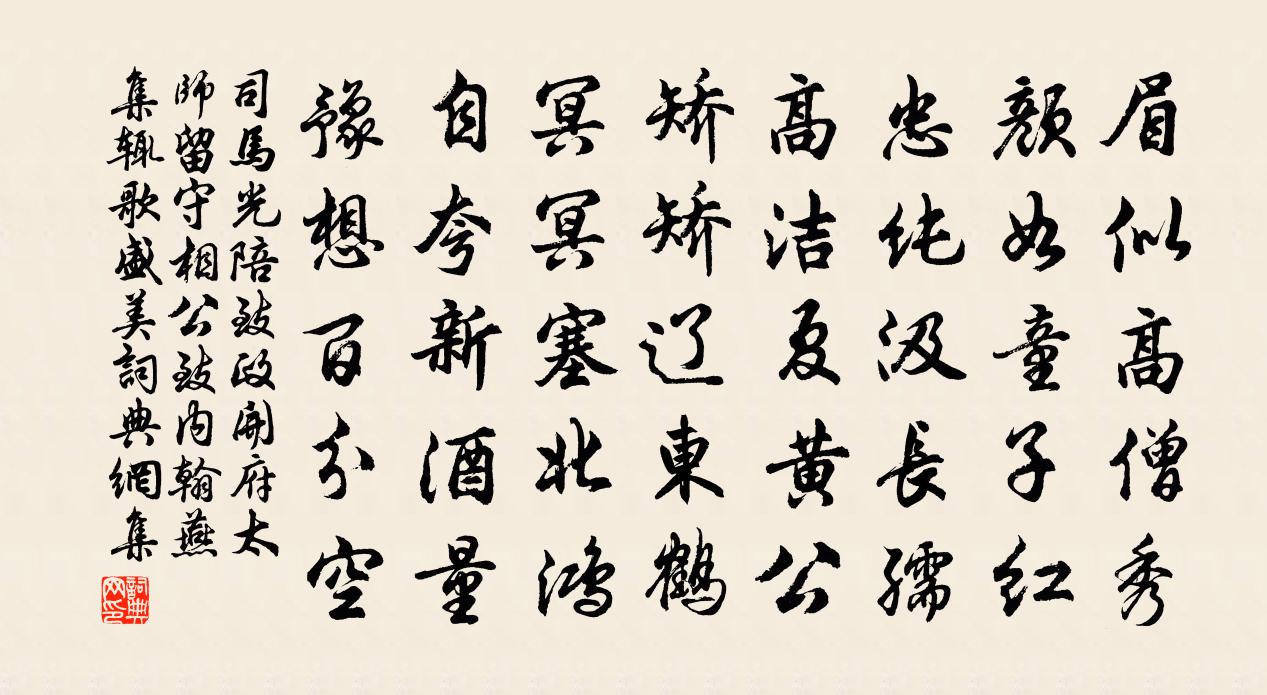 眉似高僧秀
颜如童子红
忠纯汲長孺
高洁夏黄公
矫矫辽東鹤
冥冥塞北鸿
自夸新酒量
豫想百分空
司馬光陪致政開府太
師留守相公致内翰燕
集輒歌盛美詞典網集
詞典
网印